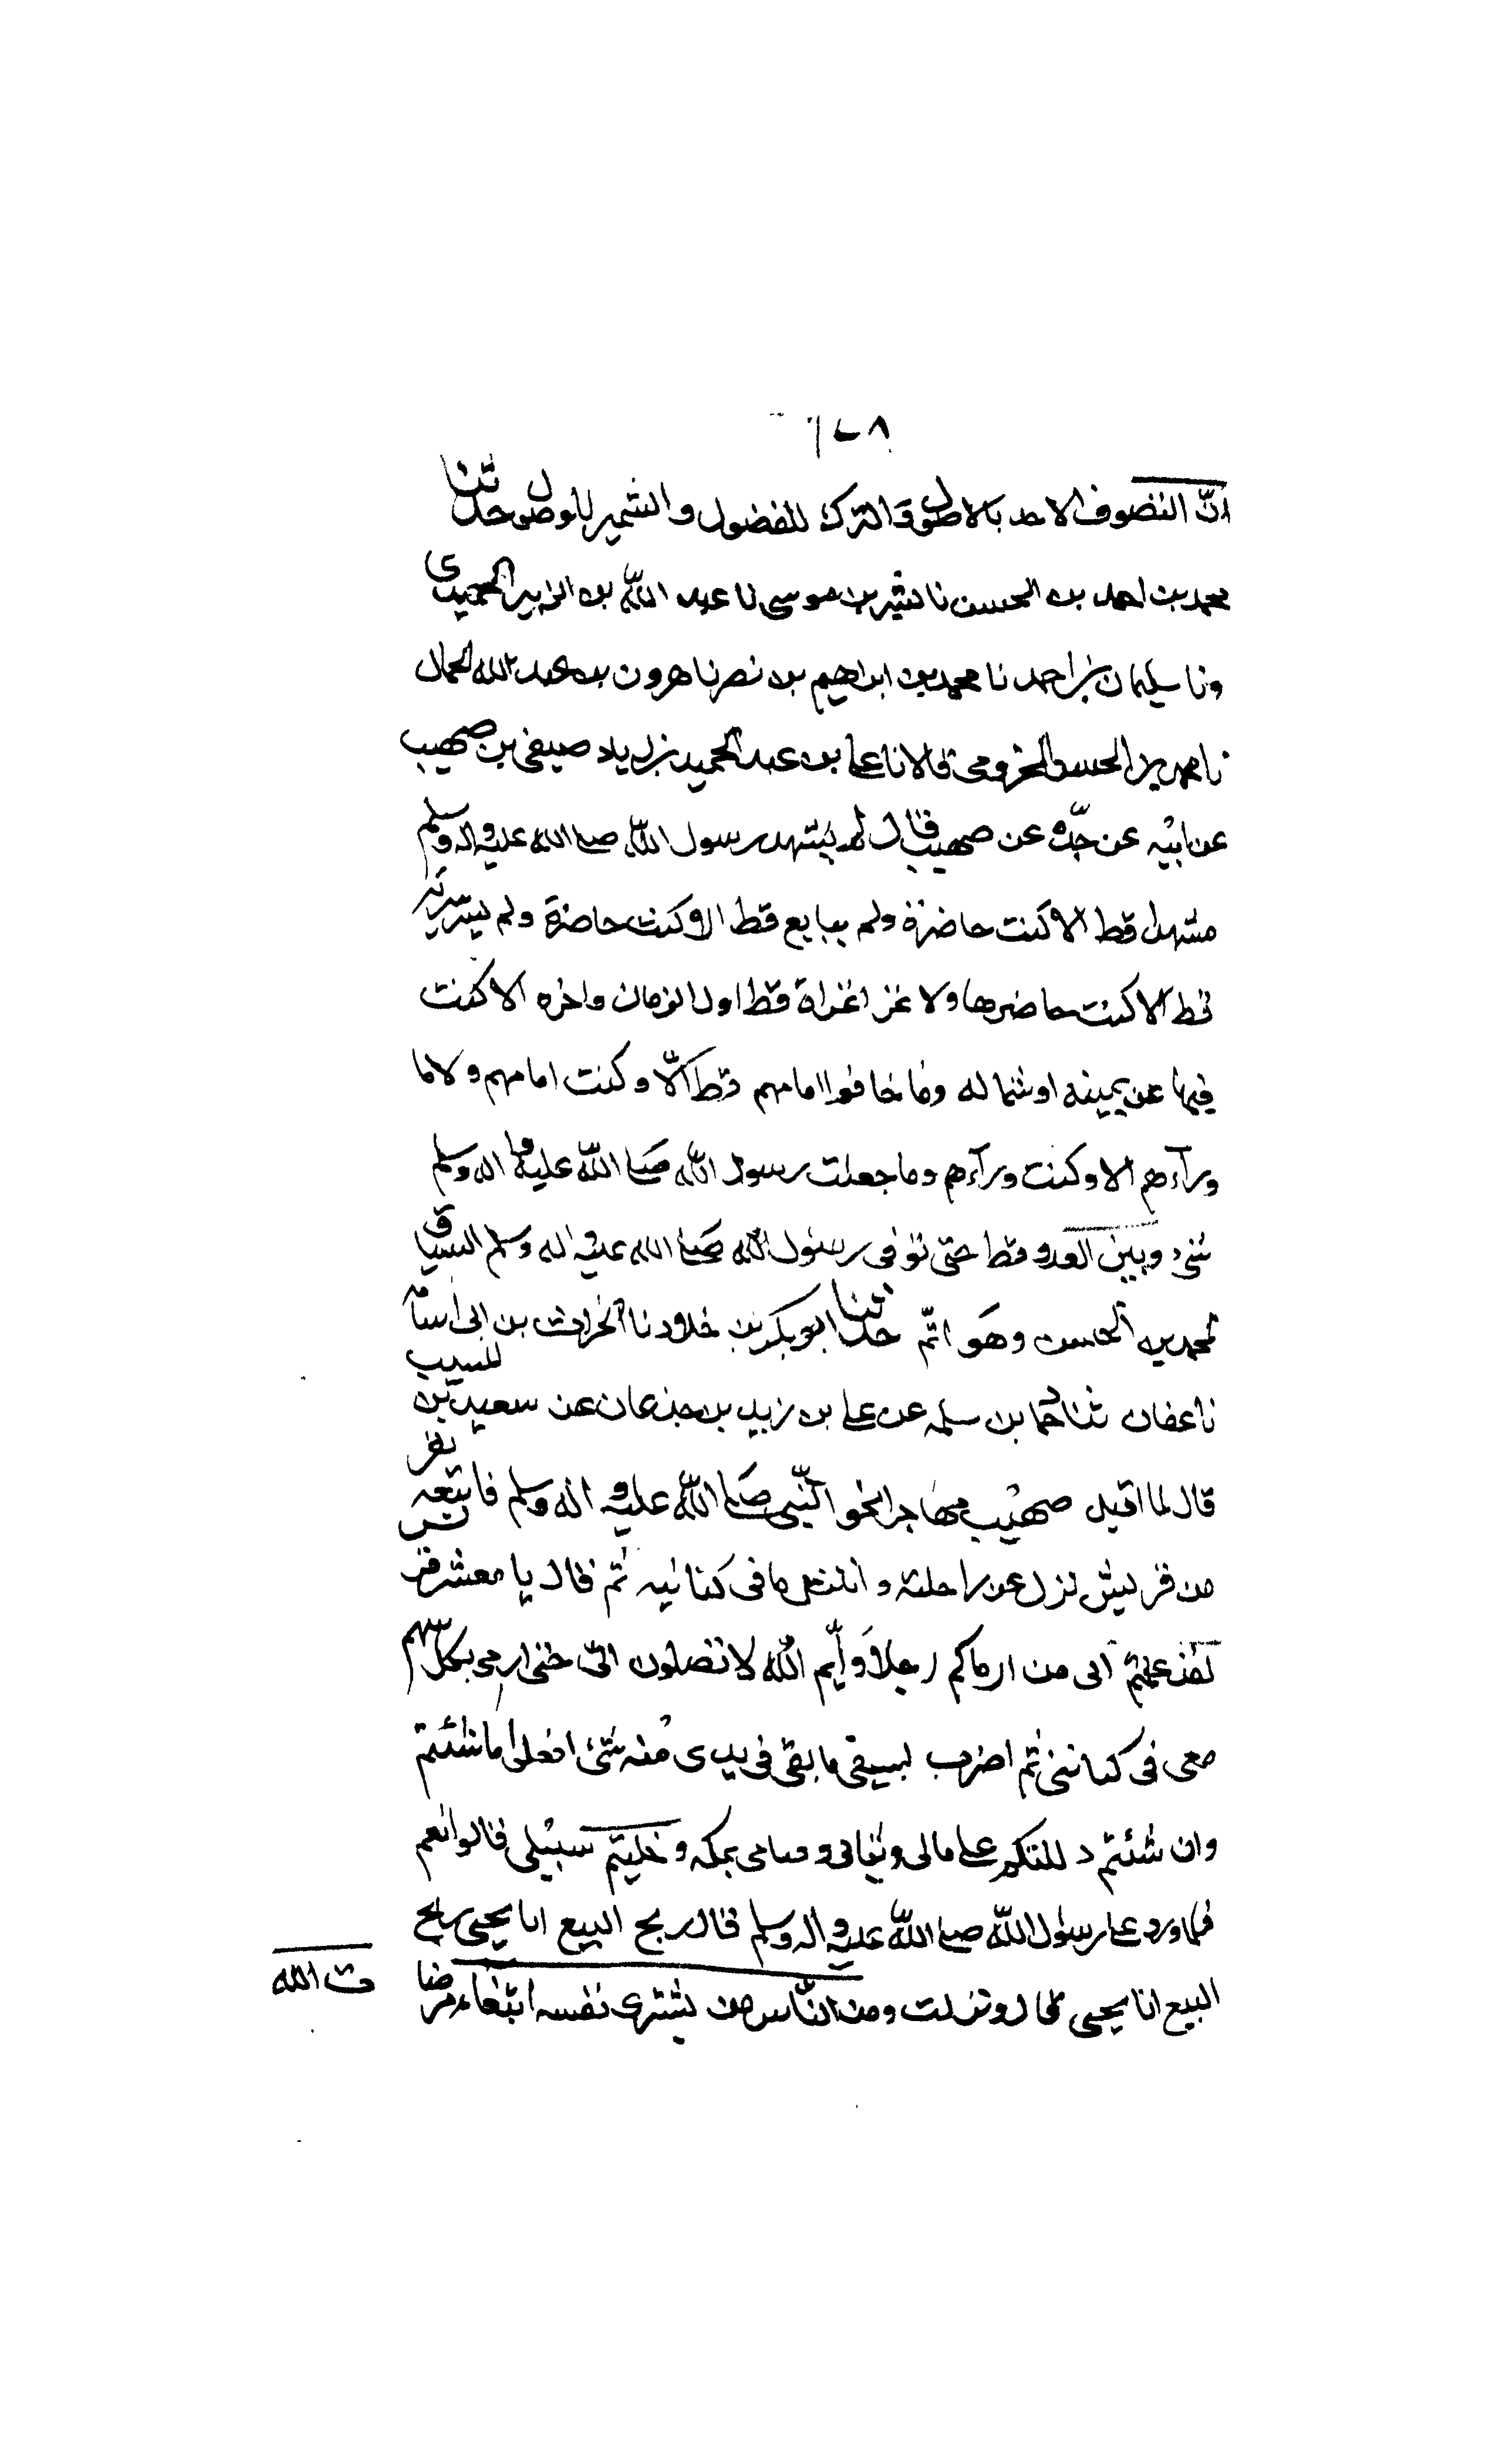 ٦٧٨
انّ التصوف الاحد بالاصول والترك للفضول والتشمير للوصول حدثنا
محمد بن احمد بن الحسن نا بشير بن موسى نا عبد الله بن الزبير الحميدى
ونا سليمان بن احمد نا محمد بن ابراهيم بن نصر نا هرون بن عبد الله الحمال
نا محمد بن الحسن المخزومى قالا نا على بن عبد الحميد بن زياد صيفى بن صهيب
عن ابيه عن جدّه عن صهيب قال لم يشهد رسول الله صلى الله عليه واله وسلم
مشهدا قط الا كنت حاضرة ولم يبايع قط الا وكنت حاضرة ولم يسر سرية
قط الا كنت حاضرها ولا غزا غزاة قط اول الزمان واخره الا كنت
فيها عن يمينه او شماله وما خافوا امامهم قط الّا وكنت امامهم ولا ما
ورآءهم الا وكنت ورآءهم وما جعلت رسول الله صلى الله عليه واله وسلم
بينى وبين العدو قط حتى توفى رسول الله صلى الله عليه واله وسلم السياق
لمحمد بن الحسن وهو اتمّ حدثنا ابو بكر بن خلاد نا الحراث بن ابى اسامة
نا عفان ثنا حماد بن سلمه عن على بن زيد بن جذعان عن سعيد بن المسيب
قال لما اقبل صهيب مهاجرا نحو النّبى صلى الله عليه واله وسلم فاتبعه نفر
من قريش نزل عن راحلته وانتثل ما فى كنانيه ثم قال يا معشر قريش
لقد علمتم انى من ارماكم رجلا وأيّم الله لا تصلون الىّ حتى ارمى بكل سهم
معى فى كنانتى ثم اضرب بسيفى ما بقى فى يدى منه شئ افعلوا ما شئتم
وان شئتم دللتكم على مالى وثيابى بمكه وخليتم سبيلى قالوا نعم
فلما ورد على رسول الله صلى الله عليه واله وسلم قال ربح البيع ابا يحيى ربح
البيع ابا يحيى قال ونزلت ومن النّاس من يشترى نفسه ابتغاء مرضات الله